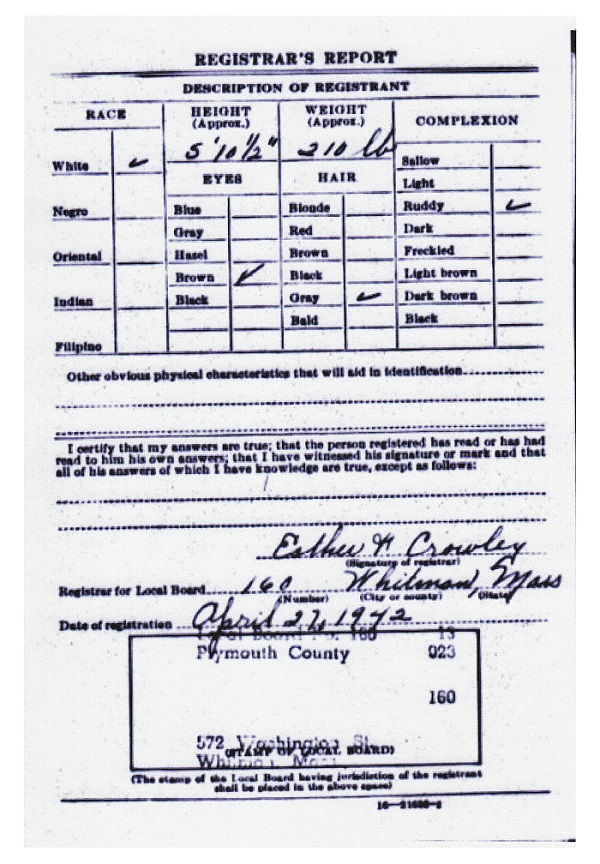 REGISTRAR'S REPORT
DESCRIPTION OF REGISTRANT
RACE
HEIGHT (Approx.)
WEIGHT (Approx.)
COMPLEXION
5' 10 1/2"
210 lb
White ✓
EYES
HAIR
Sallow
Light
Negro
Blue
Blonde
Ruddy ✓
Gray
Red
Dark
Oriental
Hazel
Brown
Freckled
Brown ✓
Black
Light brown
Indian
Black
Gray ✓
Dark brown
Bald
Black
Filipino
Other obvious physical characteristics that will aid in identification
I certify that my answers are true; that the person registered has read or has had
read to him his own answers; that I have witnessed his signature or mark and that
all of his answers of which I have knowledge are true, except as follows:
Esther Crowley
(Signature of registrar)
Registrar for Local Board 160 Whitman, Mass
(Number) (City or county) (State)
Date of registration April 27, 1942
Local Board No. 160 13
Plymouth County 023
160
572 Washington St
(STAMP OF LOCAL BOARD)
Whitman, Mass
(The stamp of the Local Board having jurisdiction of the registrant
shall be placed in the above space)